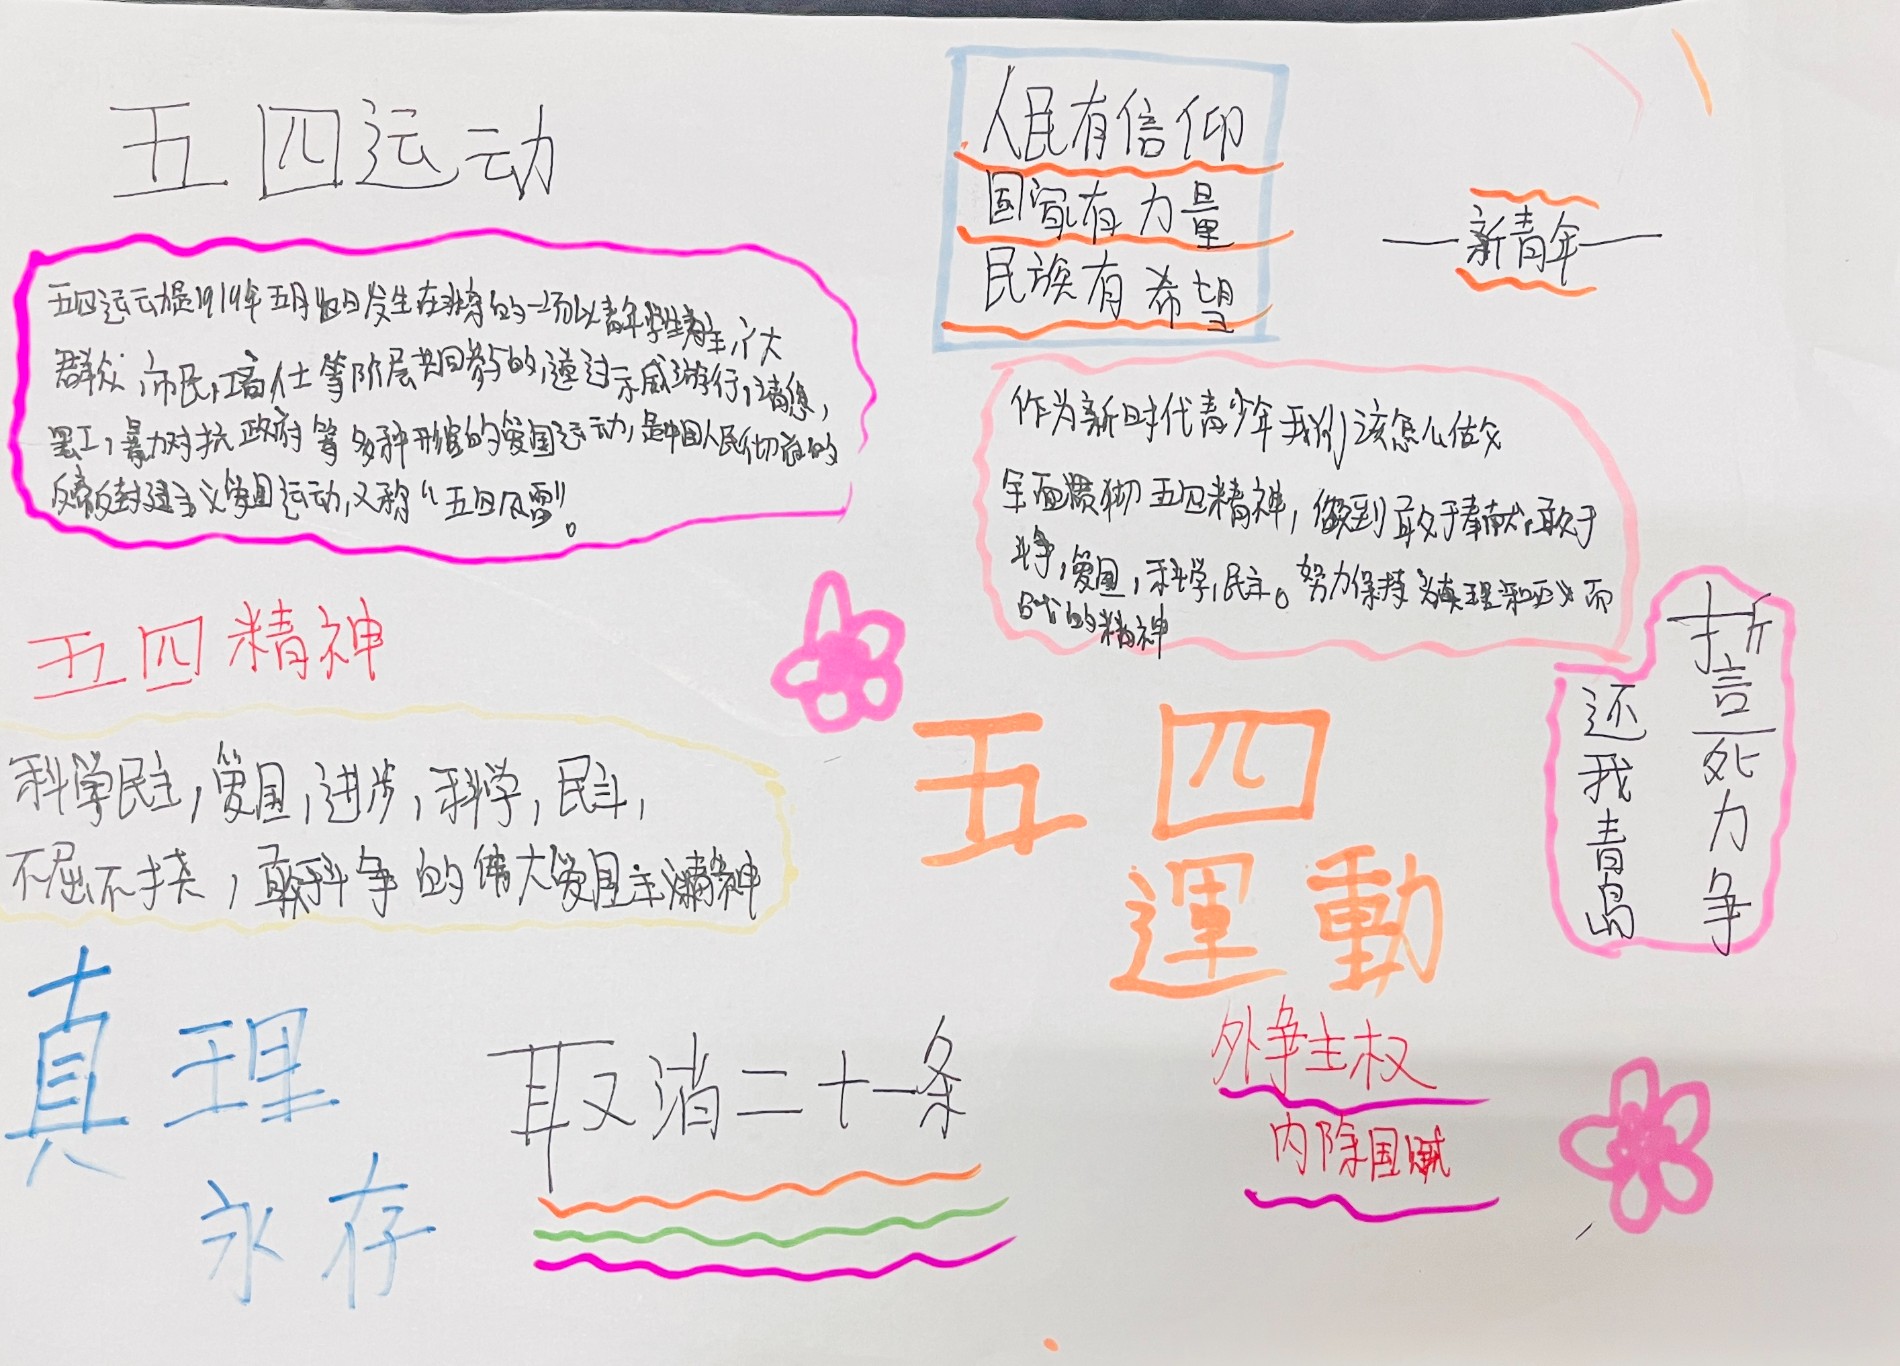 五四运动
五四运动是1919年五月四日发生在北京的一场以青年学生为主,广大
群众,市民,工商人士等阶层共同参与的,通过示威游行,请愿,
罢工,暴力对抗政府等多种形式的爱国运动,是中国人民彻底的
反帝反封建主义爱国运动,又称“五四风雷”。
五四精神
科学民主,爱国,进步,科学,民主,
不屈不挠,敢于斗争的伟大爱国主义精神
真理
永存
取消二十一条
人民有信仰
国家有力量
民族有希望
新青年
作为新时代青少年我们该怎么做
全面贯彻五四精神,做到敢于奉献,敢于
斗争,爱国,科学,民主。努力保持为真理和正义而
战的精神
誓死力争
还我青岛
五四
運動
外争主权
内除国贼